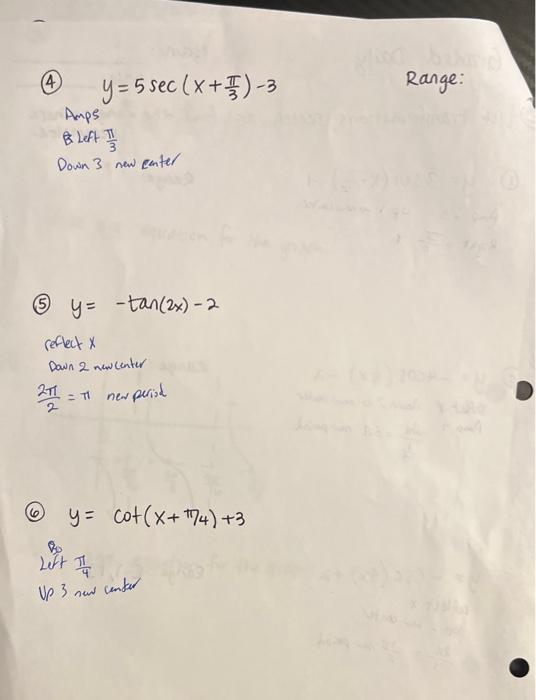 ④ y = 5 sec (x + π/3) - 3 Range:
Amp 5
Left π/3
Down 3 new center
⑤ y = -tan(2x) - 2
reflect x
Down 2 new center
2π/2 = π new period
⑥ y = cot(x + π/4) + 3
Left π/4
Up 3 new center